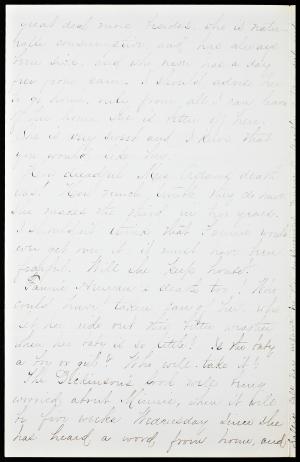 great deal more besides. she is natu-
rally consumptive, and has always
been sick, and she never has a day
free from pain. I should advise her
to go home, only from all I can learn
of her home she is better off here.
She is very sweet and I know that
you would like her.
How dreadful Mrs. death
was! How much trouble they do have.
She makes the third in one year.
I shouldn't think that Fannie would
ever get over it, it must have been
frightful. Will she keep house?
Fannie death too! Who
could have taken care of her, who
let her ride out this bitter weather
when her baby is so little! Is the baby
a boy or girl? Who will take it?
The Dickinsons good well very
worried about Minnie, when it will
be four weeks Wednesday since she
has heard a word from home, and